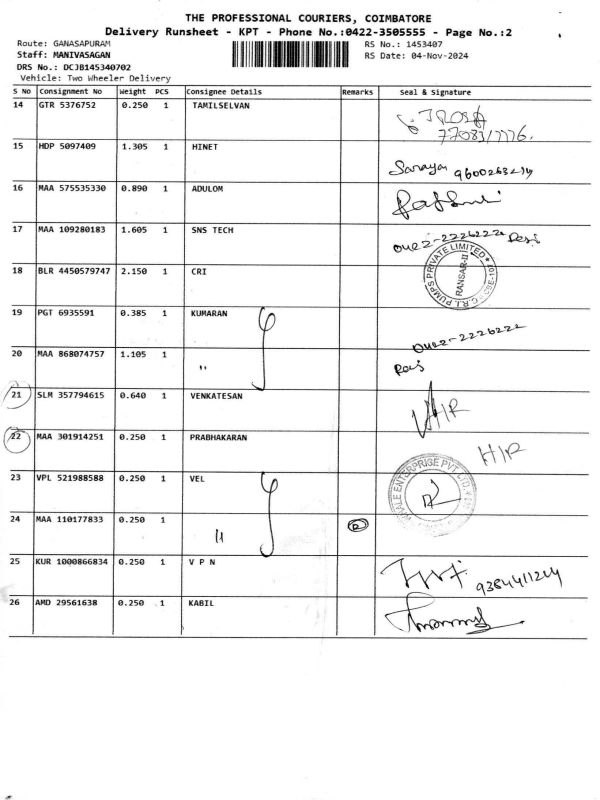 THE PROFESSIONAL COURIERS, COIMBATORE
Delivery Runsheet - KPT - Phone No.:0422-3505555 - Page No.:2
Route: GANASAPURAM RS No.: 1453407
Staff: MANIVASAGAN RS Date: 04-Nov-2024
DRS No.: DCJB145340702
Vehicle: Two Wheeler Delivery
S No Consignment No Weight PCS Consignee Details Remarks Seal & Signature
14 GTR 5376752 0.250 1 TAMILSELVAN
15 HDP 5097409 1.305 1 HINET
16 MAA 575535330 0.890 1 ADULOM
17 MAA 109280183 1.605 1 SNS TECH 0422-2226222
18 BLR 4450579747 2.150 1 CRI
C.R.I. PUMPS PRIVATE LIMITED
19 PGT 6935591 0.385 1 KUMARAN 0422-2226222
20 MAA 868074757 1.105 1 "
21 SLM 357794615 0.640 1 VENKATESAN H/R
22 MAA 301914251 0.250 1 PRABHAKARAN H/R
23 VPL 521988588 0.250 1 VEL
24 MAA 110177833 0.250 1 "
25 KUR 1000866834 0.250 1 V P N 9384411244
26 AMD 29561638 0.250 1 KABIL